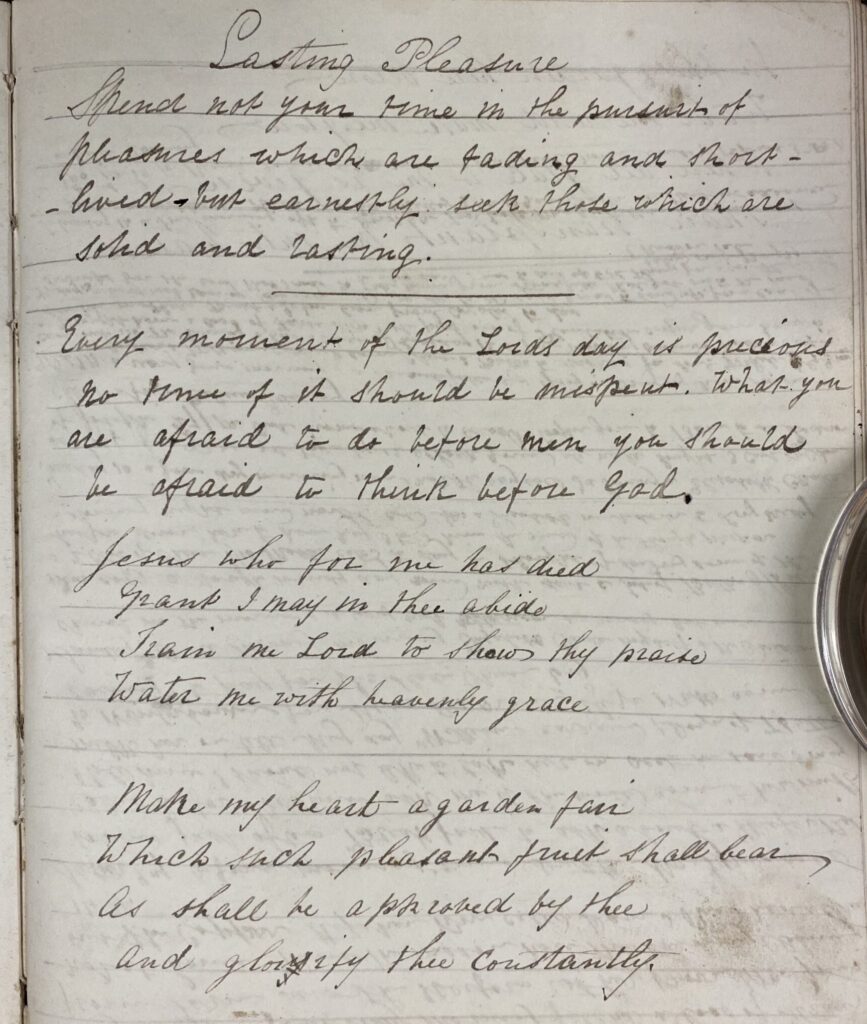 Lasting Pleasure
Spend not your time in the pursuit of
pleasures which are fading and short-
-lived - but earnestly seek those which are
solid and lasting.
Every moment of the Lords day is precious
no time of it should be mispent. What you
are afraid to do before men you should
be afraid to think before God.
Jesus who for me has died
Grant I may in thee abide
Train me Lord to show thy praise
Water me with heavenly grace
Make my heart a garden fair
Which such pleasant fruit shall bear
As shall be approved by thee
and glorify thee constantly.